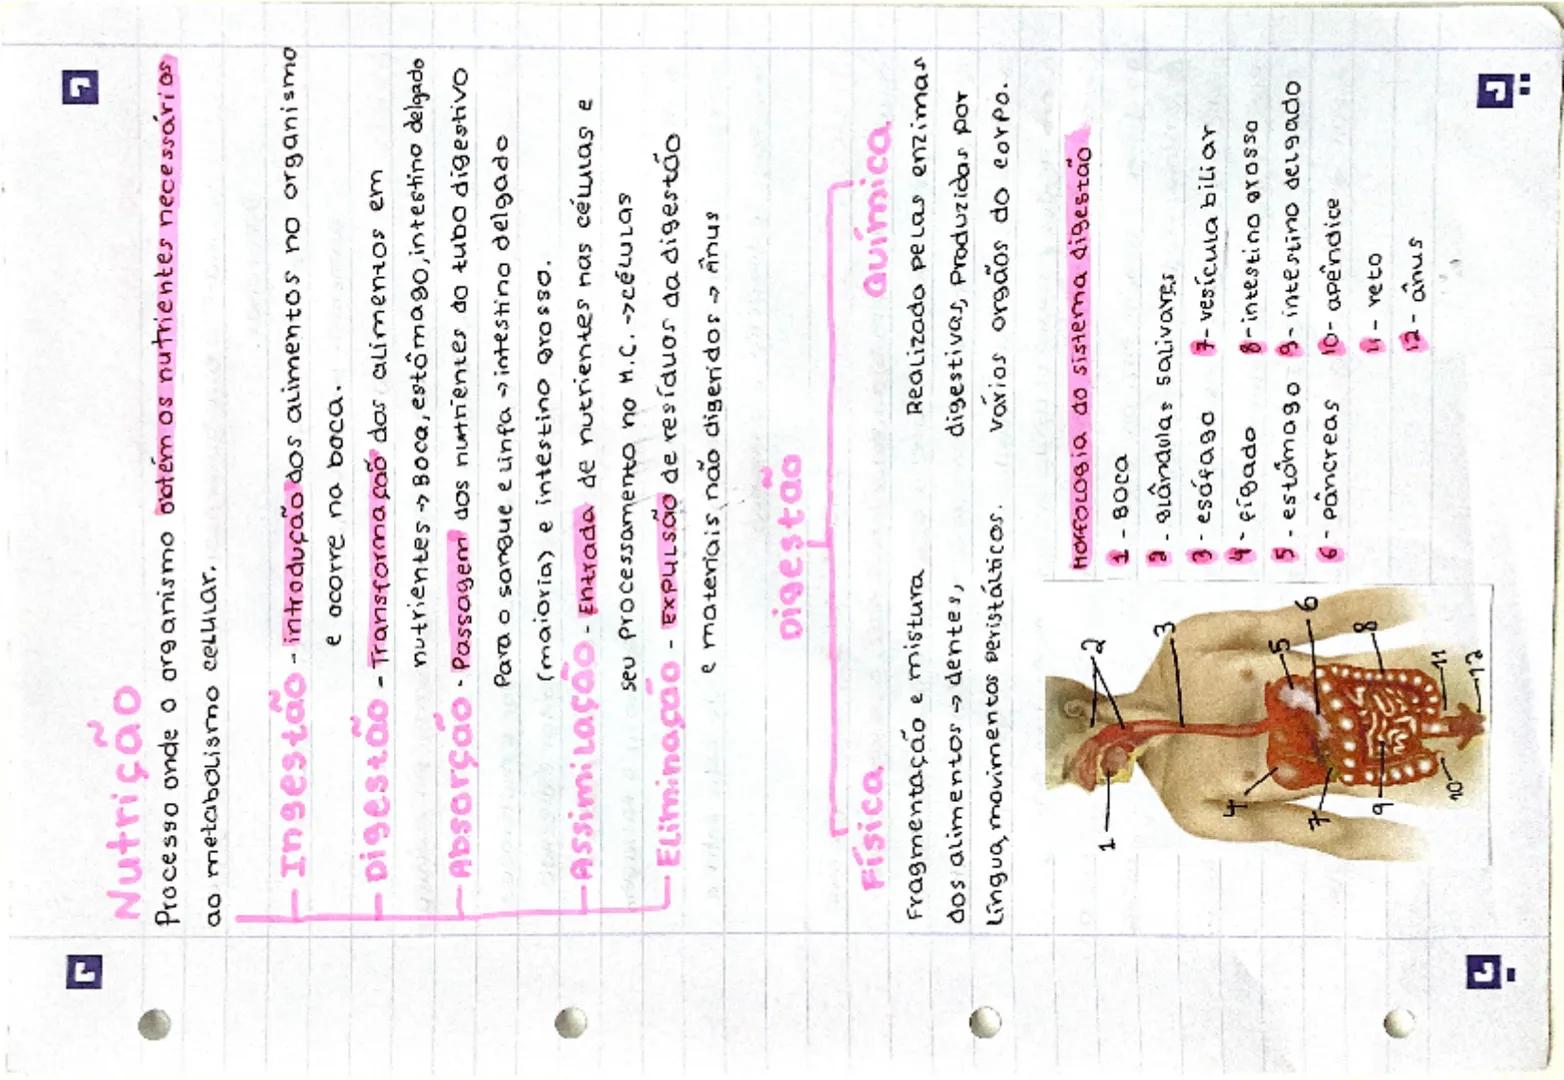 Nutrição
Processo onde o organismo obtém os nutrientes necessários
ao metabolismo celular.
Ingestão - introdução dos alimentos no organismo
e ocorre na boca.
Digestão - Transformação dos alimentos em
nutrientes → Boca, estômago, intestino delgado
Absorção - Passagem dos nutrientes do tubo digestivo
Para o sangue e linfa → intestino delgado
(maioria) e intestino grosso.
Assimilação - Entrada de nutrientes nas células e
seu Processamento no M.C. → células
Eliminação - expulsão de resíduos da digestão
e materiais não digeridos → ânus
Digestão
Física
Química
Fragmentação e mistura
dos alimentos → dentes,
língua, movimentos peristálticos.
Realizado pelas enzimas
digestivas, Produzidas por
vários orgãos do corpo.
Morfologia do sistema digestão
1 - Boca
2 - glândulas salivares
3 - esófago
4 - fígado
5 - estômago
6 - pâncreas
7 - vesícula biliar
8 - intestino grosso
9 - intestino delgado
10 - apêndice
11 - reto
12 - ânus
1
2
3
4
5
6
7
8
9
10
11
12